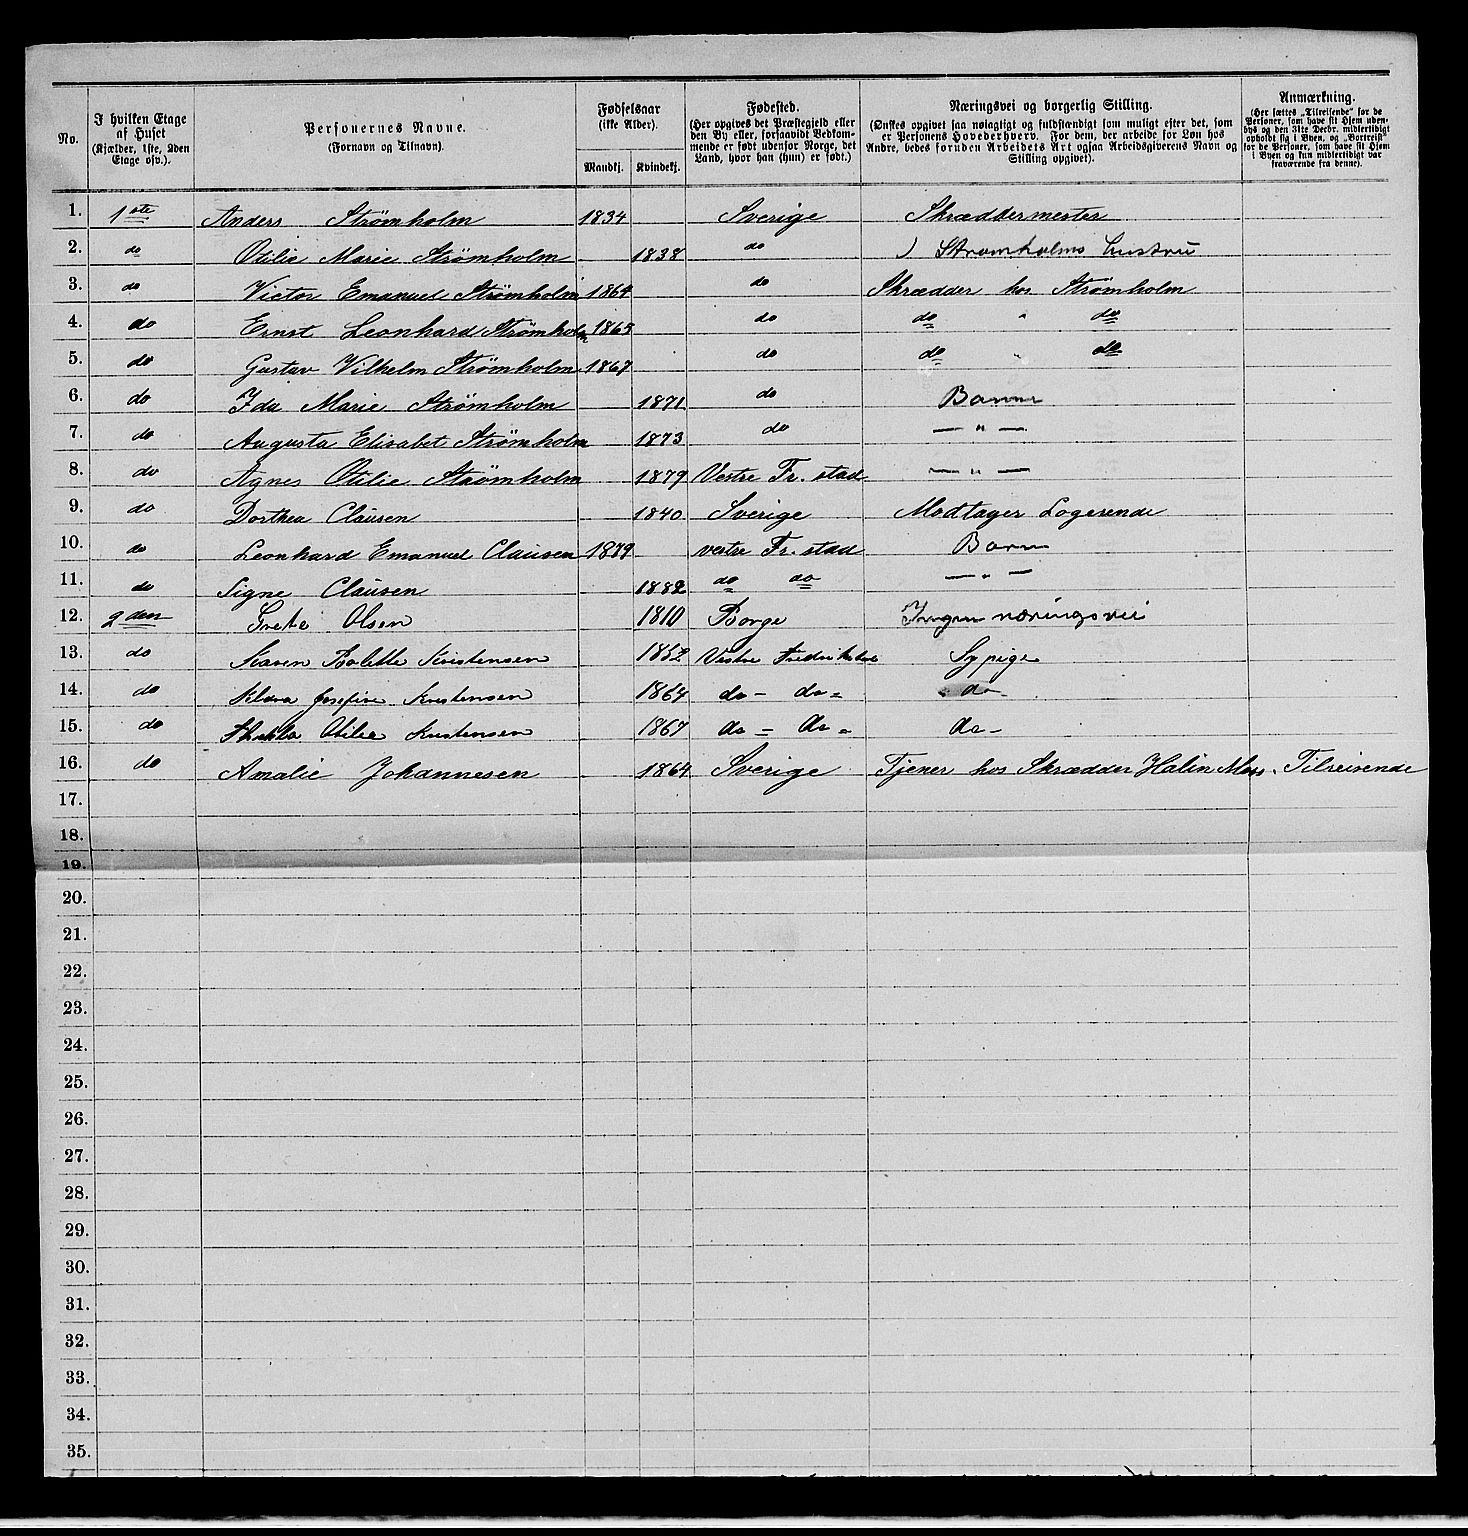 No.
I hvilken Etage
af Huset
(Kjælder, 1ste, 2den
Etage osv.).
Personernes Navne.
(Fornavn og Tilnavn).
Fødselsaar
(ikke Alder).
Mandkj. Kvindekj.
Fødested.
(Her opgives det Præstegjeld eller
den By eller, forsaavidt Vedkom-
mende er født udenfor Norge, det
Land, hvor han (hun) er født.)
Næringsvei og borgerlig Stilling.
(Ønskes opgivet saa nøiagtigt og fuldstændigt som muligt efter det, som
er Personens Hovederhverv. For dem, der arbeide for Løn hos
Andre, bedes foruden Arbeidets Art ogsaa Arbeidsgiverens Navn og
Stilling opgivet).
Anmærkning.
(Her sættes „Tilreisende“ for de
Personer, som have sit Hjem uden-
bys og den 31te Decbr. midlertidigt
opholdt sig i Byen, og „Bortreist“
for de Personer, som have sit Hjem
i Byen og kun midlertidigt var
fraværende fra denne).
1. 1ste Anders Strømholm 1834 Sverige Skræddermester
2. do Otilie Marie Strømholm 1838 do ) Strømholms hustru
3. do Victor Emanuel Strømholm 1864 do Skrædder hos Strømholm
4. do Ernst Leonhard Strømholm 1865 do do " do
5. do Gustav Vilhelm Strømholm 1867 do do " do
6. do Ida Marie Strømholm 1871 do Barn
7. do Augusta Elisabet Strømholm 1873 do — " —
8. do Agnes Otilie Strømholm 1879 Vestre Fr. stad — " —
9. do Dorthea Clausen 1840 Sverige Modtager Logerende
10. do Leonhard Emanuel Clausen 1879 vestre Fr. stad Barn
11. do Signe Clausen 1882 do do — " —
12. 2den Grete Olsen 1810 Borge Ingen næringsvei
13. do Karen Bolette Kristensen 1862 Vestre Fredrikstad Sypige
14. do Klara Josefine Kristensen 1864 do - do - do
15. do Otilie Kristensen 1867 do - do - do -
16. do Amalie Johannesen 1864 Sverige Tjener hos Skrædder Halin Moss. Tilreisende
17.
18.
19.
20.
21.
22.
23.
24.
25.
26.
27.
28.
29.
30.
31.
32.
33.
34.
35.